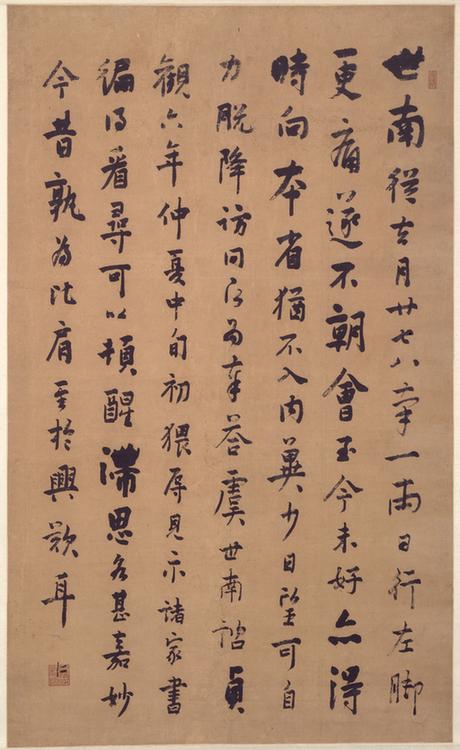 世南從去月廿七八率一兩日行左脚
更痛遂不朝會至今未好亦得
時向本省猶不入内冀少日望可自
力脱降訪問為奉答虞世南諮貞
觀六年仲夏中旬初猥辱見示諸家書
徧得看尋可以頓醒滯思各甚嘉妙
今昔孰為比肩至於興歎耳
仁